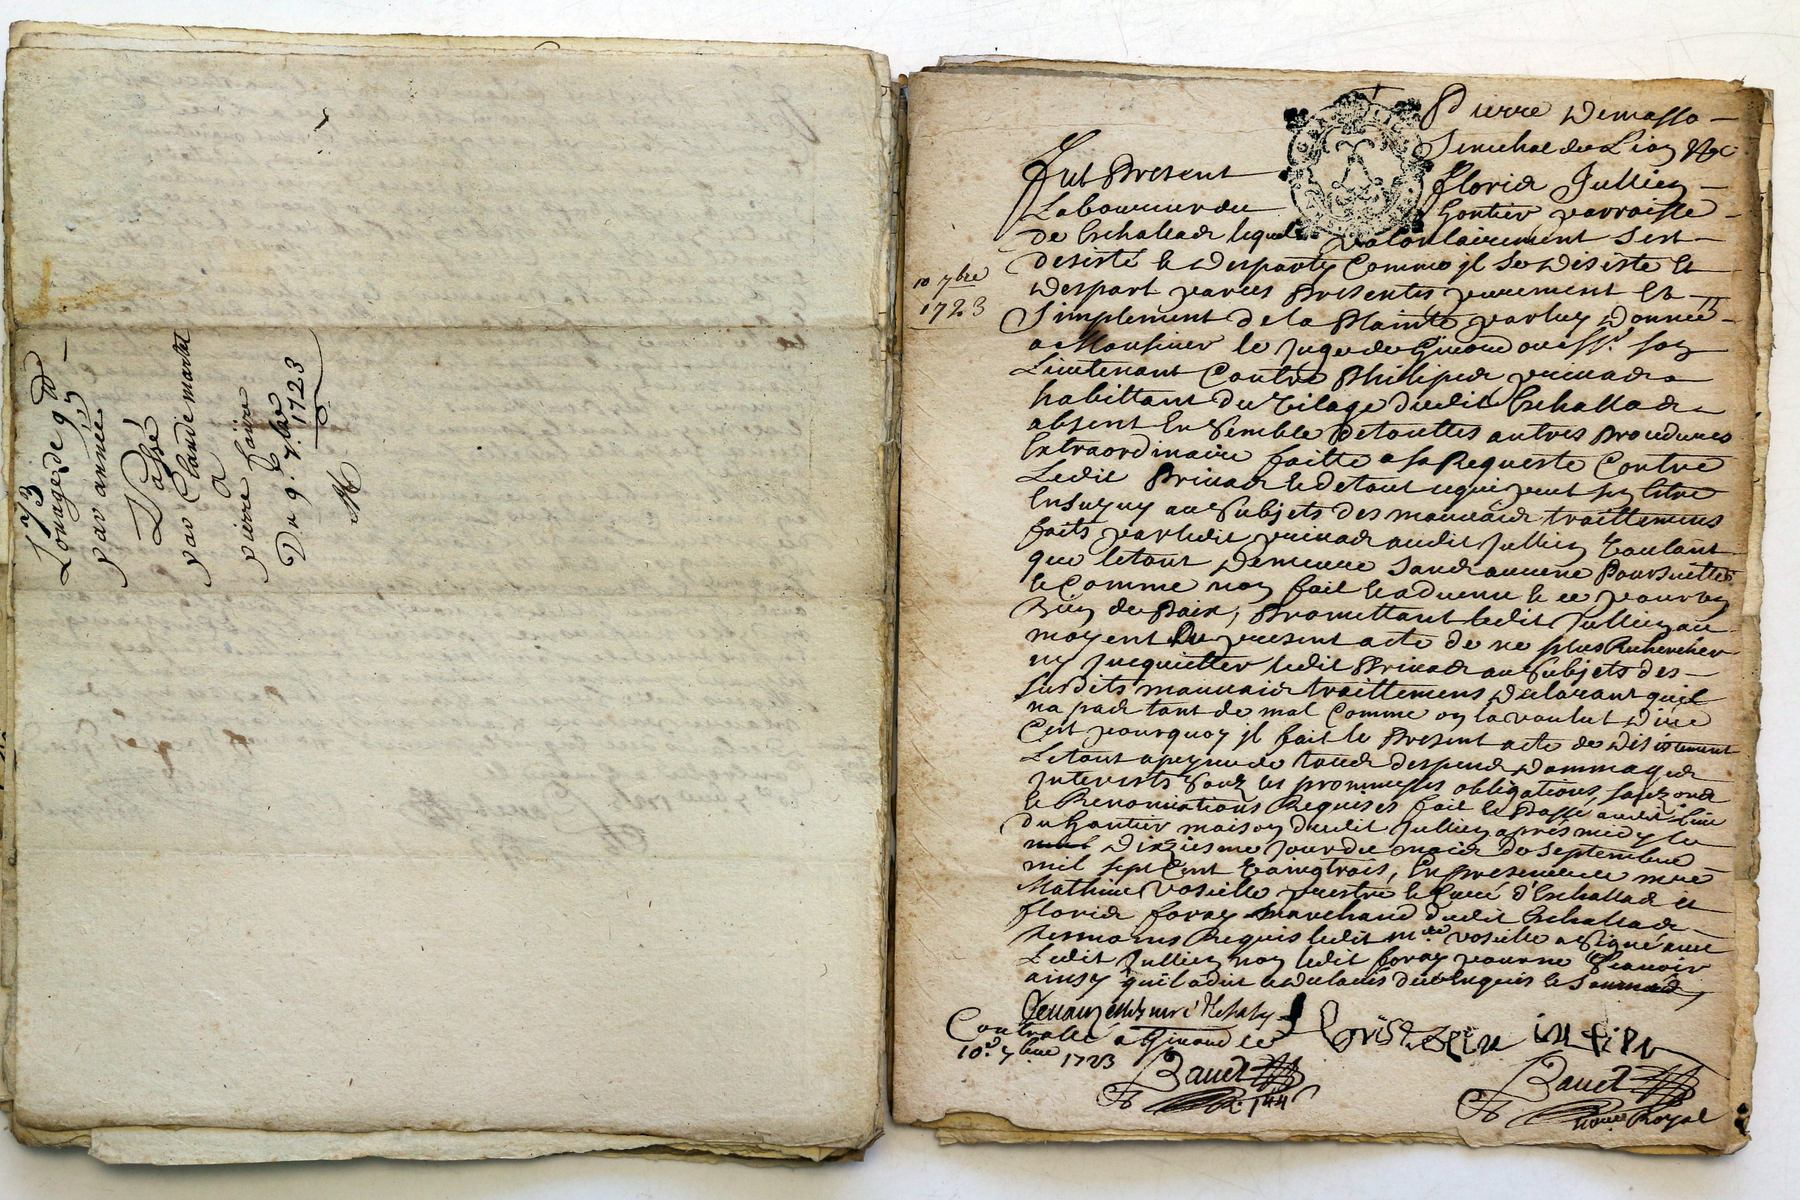 173
Louage de 9 d
par année
Passé
par Claude martel
A
pierre faure
Du 9. 7.bre 1723
Pierre Demasso
Senechal de Lion &c
Fut Present Floris Jullien
Laboureur du Gontier parroisse
de Eschallas lequel volontairement sest
desisté et desparty Comme jl se desiste et
despart par ces Presentes purement Et
Simplement de la Plainte par luy donnée
a Monsieur le Juge de Givord ou son
Lieutenant Contre Philipes
habittant du vilage dudit Eschallas
absent Ensemble de touttes autres Procedures
Extraordinaire faitte a sa Requeste Contre
Ledit et de tout ce qui peut sen estre
Ensuyvy au Subjets des mauvais traittemens
faits par ledit audit Jullien voulant
que le tout demeure sans aucune Poursuittes
et Comme non fait et advenu et ce pour
bien de Paix, Promettant ledit Jullien au
moyent Du present acte de ne plus Rechercher
ny Jnquietter ledit au Subjets des
Susdits mauvais traittemens declarant quil
na pas tant de mal Comme on la voulut dire
Cest pourquoy jl fait le Present acte de desistement
Le tout a peyne de tous despens dommages
Interests Soubs les promesses obligations,
et Renonciations Requises fait et Passé audit lieu
du Gontier maison dudit Jullien après midy le
dixiesme Jour du mois de Septembre
mil sept Cent vaingtrois, En presence de
Mathieu prestre et Curé d'Eschallas et
floris foray marchand dudit Eschallas
temoins Requis ledit a Signé avec
Ledit Jullien non ledit foray pour ne Scavoir
ainsy quil a dit et declaré de ce Enquis et Sommé
10 7bre
1723
Controllé a Givord le
10.e 7bre 1723
Bauet
Bauet
Royal